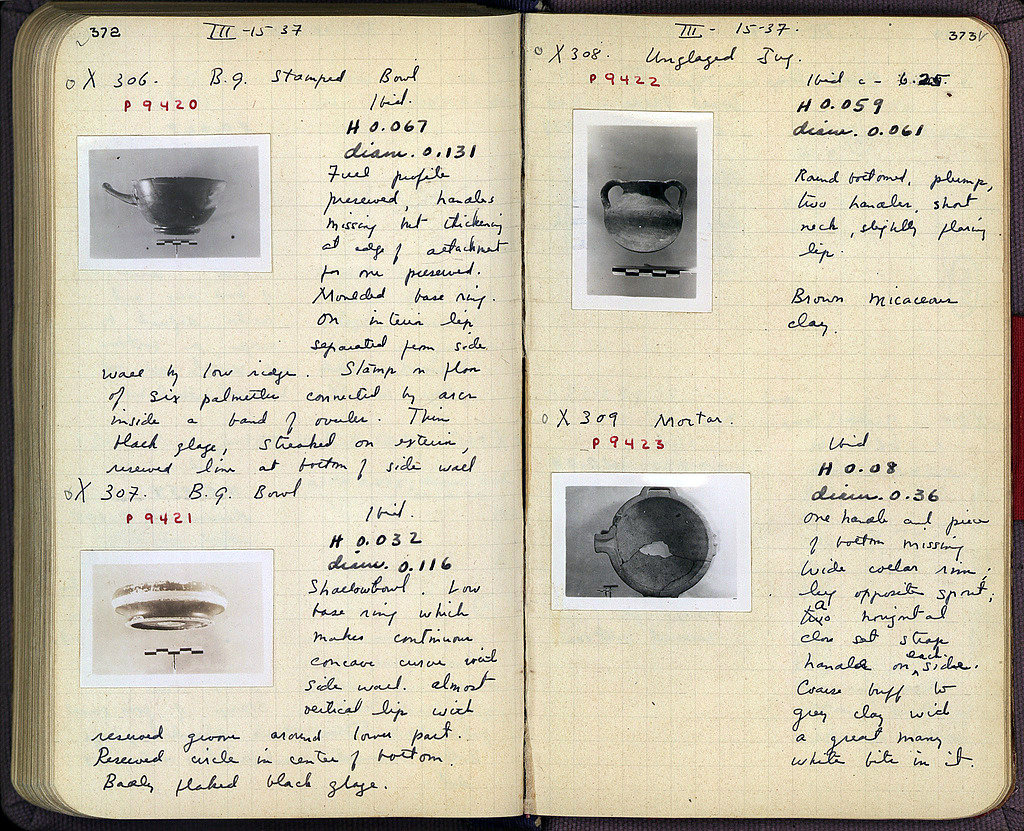 372
III -15-37
X 306. B.G. Stamped Bowl
P 9420
Ibid.
H 0.067
diam. 0.131
Full profile
preserved, handles
missing but thickening
at edge of attachment
for one preserved.
Moulded base ring.
On interior lip
separated from side
wall by low ridge. Stamp on floor
of six palmettes connected by arcs
inside a band of ovules. Thin
black glaze, streaked on exterior,
reserved line at bottom of side wall
X 307. B.G. Bowl
P 9421
Ibid.
H 0.032
diam. 0.116
Shallow bowl. Low
base ring which
makes continuous
concave curve with
side wall. almost
vertical lip with
reserved groove around lower part.
Reserved circle in center of bottom.
Badly flaked black glaze.
III - 15-37.
373
X 308. Unglazed Jug.
P 9422
Ibid c - 6.25.
H 0.059
diam. 0.061
Round bottomed, plump,
two handles, short
neck, slightly flaring
lip.
Brown micaceous
clay.
X 309 Mortar.
P 9423
Ibid
H 0.08
diam. 0.36
one handle and piece
of bottom missing
Wide collar rim;
lug opposite spout;
a horizontal
close set strap
handle on each side.
Coarse buff to
grey clay with
a great many
white bits in it.